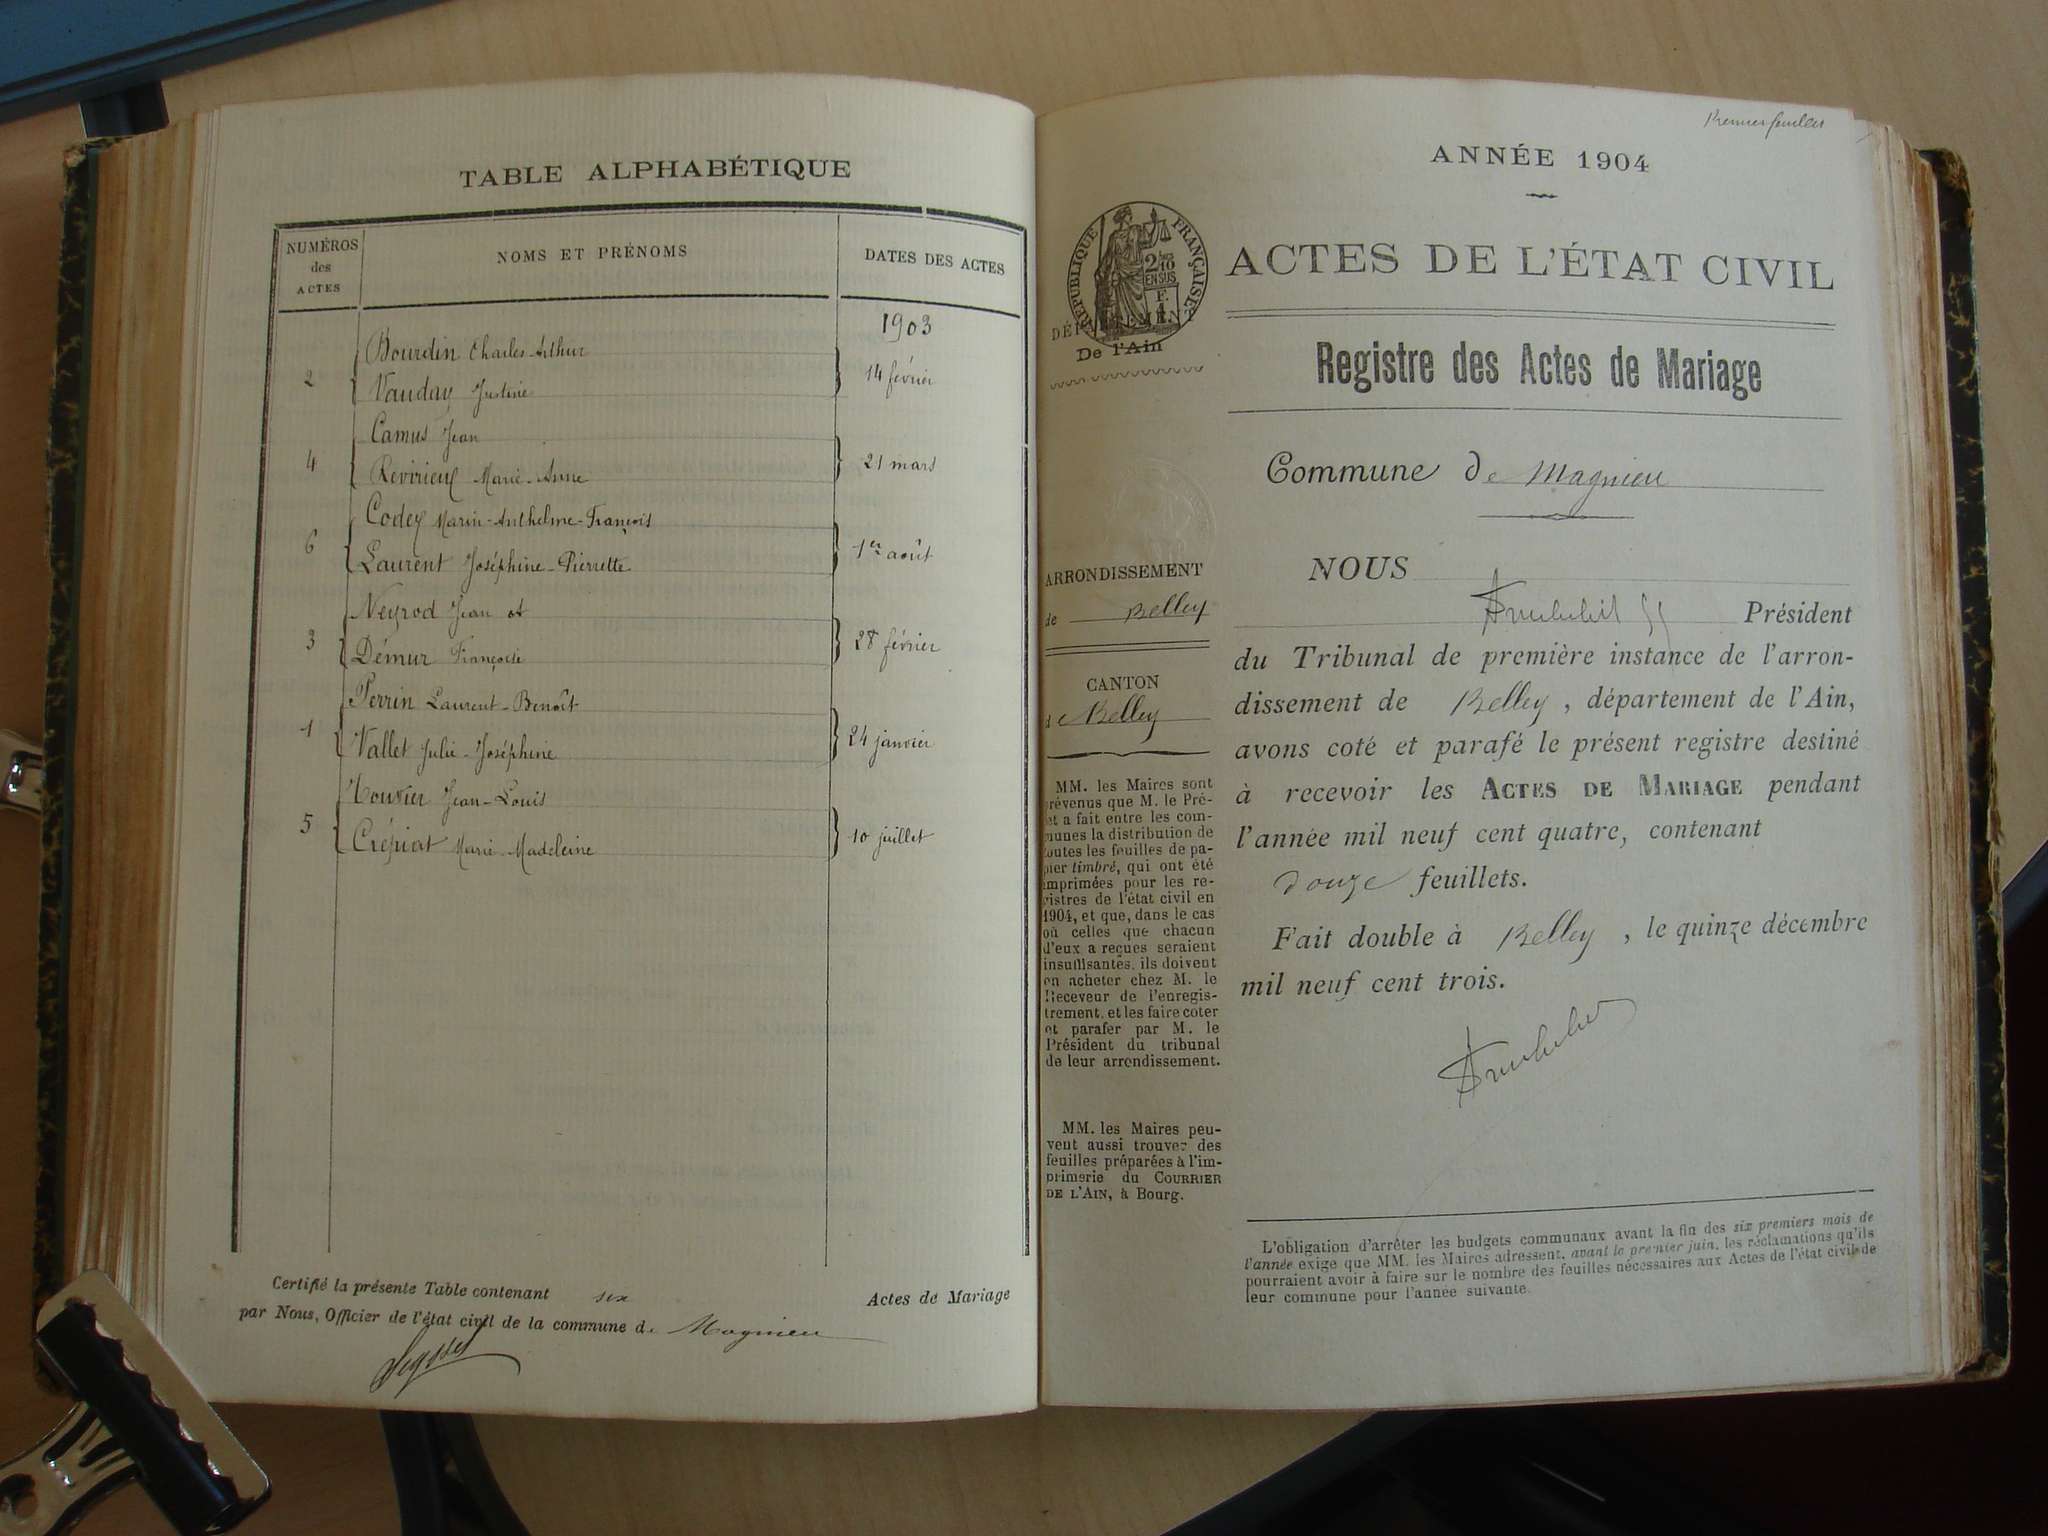 TABLE ALPHABÉTIQUE
NUMÉROS
des
ACTES
NOMS ET PRÉNOMS
DATES DES ACTES
1903
Bourdin Charles-Arthur
2 Vauday Justine 14 février
Camus Jean
4 Revirieux Marie-Anne 21 mars
Codex Marin-Anthelme-François
6 Laurent Joséphine-Pierrette 1er août
Neyrod Jean et
3 Démur Françoise 28 février
Perrin Laurent-Benoît
1 Vallet Julie-Joséphine 24 janvier
Rouvier Jean-Louis
5 Crépiat Marie-Madeleine 10 juillet
Certifié la présente Table contenant six Actes de Mariage
par Nous, Officier de l'état civil de la commune de Magnieu
Premier feuillet
ANNÉE 1904
RÉPUBLIQUE FRANÇAISE
2/10
EN SUS
F.
1
DÉPARTEMENT
De l'Ain
ACTES DE L'ÉTAT CIVIL
Registre des Actes de Mariage
Commune de Magnieu
ARRONDISSEMENT
de Belley
CANTON
de Belley
MM. les Maires sont
prévenus que M. le Pré-
et a fait entre les com-
munes la distribution de
toutes les feuilles de pa-
pier timbré, qui ont été
imprimées pour les re-
gistres de l'état civil en
1904, et que, dans le cas
où celles que chacun
d'eux a reçues seraient
insuffisantes, ils doivent
en acheter chez M. le
Receveur de l'enregis-
trement, et les faire coter
et parafer par M. le
Président du tribunal
de leur arrondissement.
MM. les Maires peu-
vent aussi trouver des
feuilles préparées à l'im-
primerie du COURRIER
DE L'AIN, à Bourg.
NOUS
Président
du Tribunal de première instance de l'arron-
dissement de Belley, département de l'Ain,
avons coté et parafé le présent registre destiné
à recevoir les ACTES DE MARIAGE pendant
l'année mil neuf cent quatre, contenant
douze feuillets.
Fait double à Belley, le quinze décembre
mil neuf cent trois.
L'obligation d'arrêter les budgets communaux avant la fin des six premiers mois de
l'année exige que MM. les Maires adressent, avant le premier juin, les réclamations qu'ils
pourraient avoir à faire sur le nombre des feuilles nécessaires aux Actes de l'état civil de
leur commune pour l'année suivante.